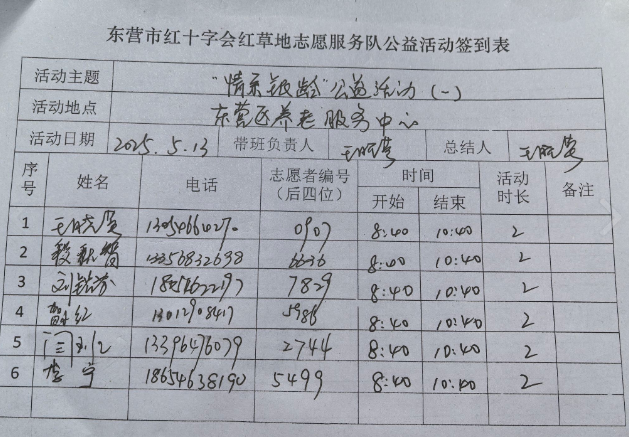 东营市红十字会红草地志愿服务队公益活动签到表
活动主题 “情系银龄”公益活动（一）
活动地点 东营区养老服务中心
活动日期 2025.5.13 带班负责人 总结人
序号 姓名 电话 志愿者编号（后四位） 时间 开始 结束 活动时长 备注
1 0907 8:40 10:40 2
2 6636 8:40 10:40 2
3 7829 8:40 10:40 2
4 5988 8:40 10:40 2
5 13396476079 2744 8:40 10:40 2
6 李宁 18654638190 5499 8:40 10:40 2